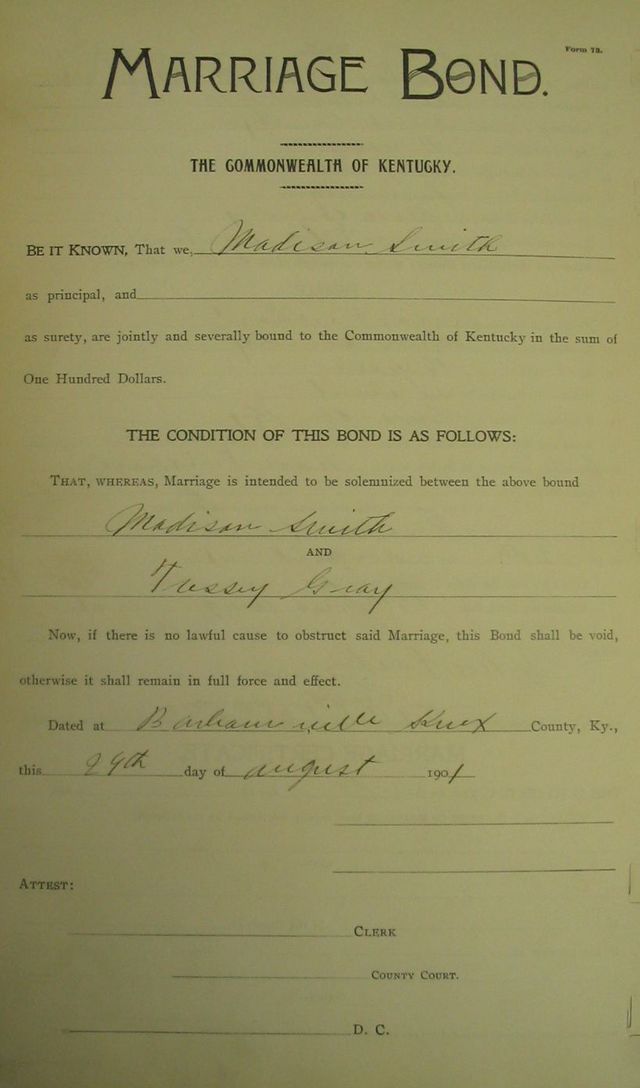 Form 73.
MARRIAGE BOND.
THE COMMONWEALTH OF KENTUCKY.
BE IT KNOWN, That we, Madison Smith
as principal, and
as surety, are jointly and severally bound to the Commonwealth of Kentucky in the sum of
One Hundred Dollars.
THE CONDITION OF THIS BOND IS AS FOLLOWS:
THAT, WHEREAS, Marriage is intended to be solemnized between the above bound
Madison Smith
AND
Tussey Gray
Now, if there is no lawful cause to obstruct said Marriage, this Bond shall be void,
otherwise it shall remain in full force and effect.
Dated at Barbourville Knox County, Ky.,
this 29th day of august 1901
ATTEST:
CLERK
COUNTY COURT.
D. C.